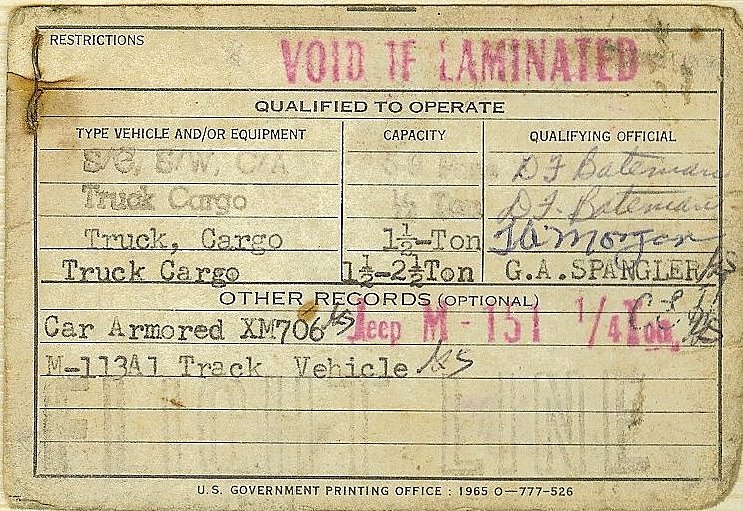 RESTRICTIONS
VOID IF LAMINATED
QUALIFIED TO OPERATE
TYPE VEHICLE AND/OR EQUIPMENT CAPACITY QUALIFYING OFFICIAL
S/S, S/W, C/A D F Bateman
Truck Cargo 1½ Ton D.F. Bateman
Truck, Cargo 1½-Ton Morgan
Truck Cargo 1½-2½Ton G.A.SPANGLER
OTHER RECORDS (OPTIONAL)
Car Armored XM706 Jeep M-151 1/4 Ton
M-113A1 Track Vehicle
U.S. GOVERNMENT PRINTING OFFICE : 1965 O—777-526